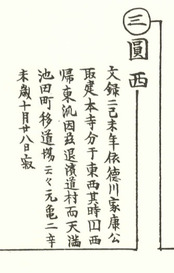 三 圓西
文録二己未年依德川家康公
取建本寺分于東西其時旧西
帰東汎因玆退濱道村而天滿
池田町移道塲云々元亀二辛
未歳十月廿八日寂